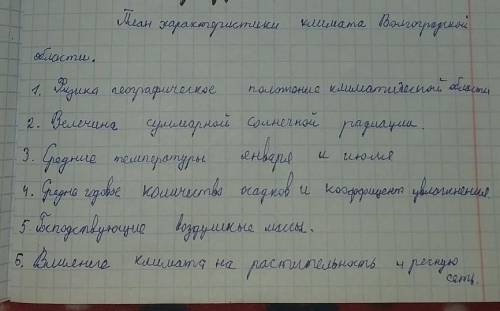 План характеристики климата Волгоградской
области.
1. Физика географическое положение климатической области
2. Велечина суммарной солнечной радиации.
3. Средние температуры января и июля
4. Средне годовое количество осадков и коэффицент увлажнения
5. Господствующие воздушные массы.
6. Влияние климата на растительность и речную
сеть.